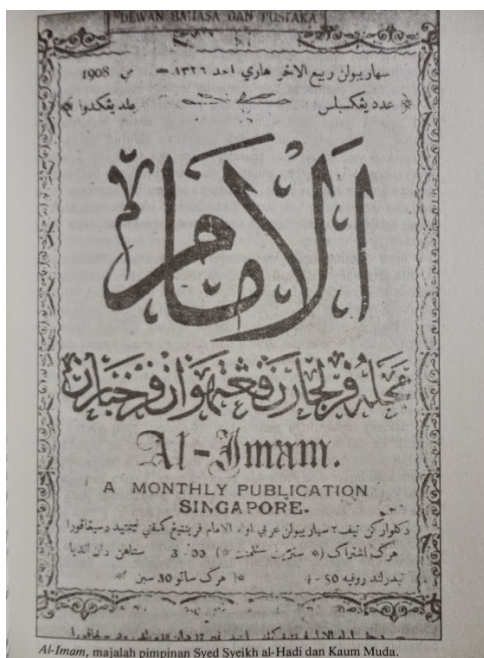 DEWAN BAHASA DAN PUSTAKA
سهاريبولن ربيع الاخر هاري احد ١٣٢٦ — مي 1908
عدد يڠكسبلس جلد يڠكدوا
الامام
مجله ڤلجارن ڤڠتهوان ڤرخبارن
Al-Imam.
A MONTHLY PUBLICATION
SINGAPORE.
دكلواركن تيڤ٢ سهاريبولن عربي اوله الامام ڤرينتيڠ كمڤني ليميتيد دسيڠاڤورا
هرݢ اشتراك (سترين ستلمنت) 3.00 ستاهن دان اندیا
نيدرلند روڤيه 50-4 هرݢ ساتو 30 سين
Al-Imam, majalah pimpinan Syed Syeikh al-Hadi dan Kaum Muda.